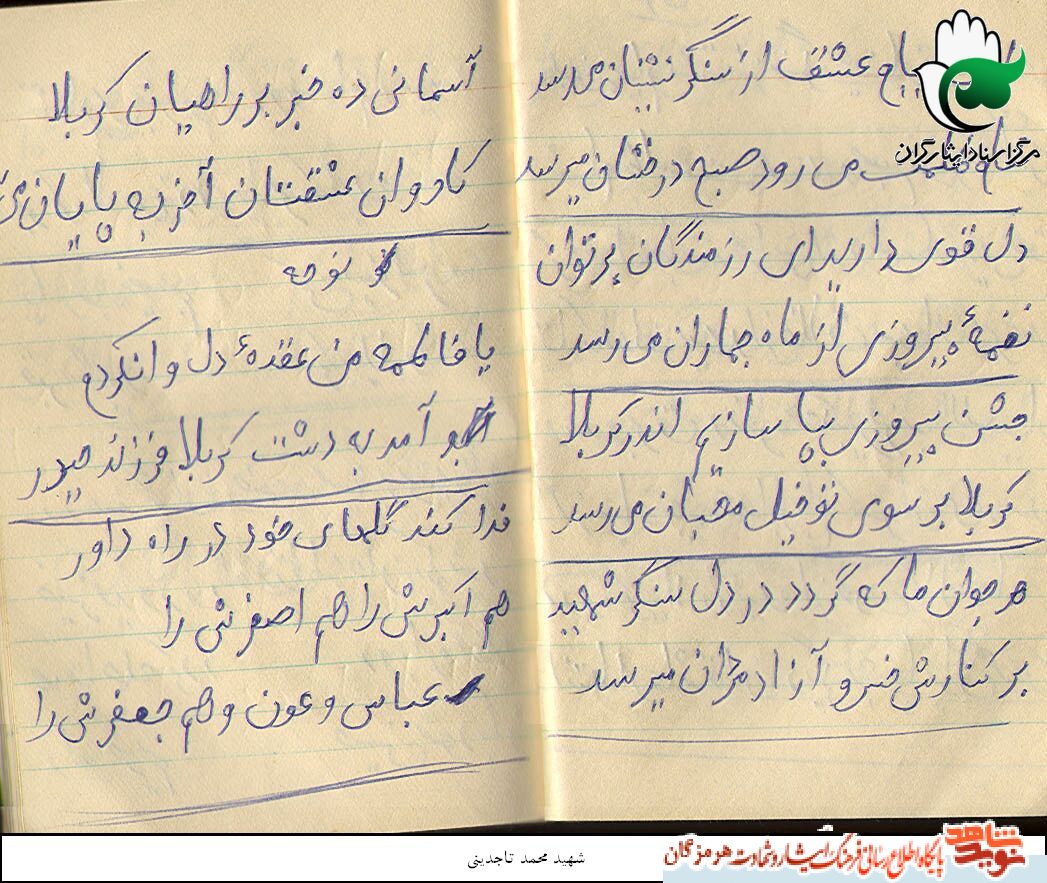 پیام عشق از سنگر نشینان میرسد
ظلمت می رود صبح درخشان میرسد
دل قوی دارید ای رزمندگان پرتوان
نغمهٔ پیروزی از ماه جماران می رسد
جشن پیروزی بپا سازیم اندر کربلا
کربلا بر سوی نو خیل محبان می رسد
هر جوان ما که گردد در دل سنگر شهید
بر کنارش خسرو آزادمردان میرسد
آسمانی ده خبر بر راهیان کربلا
کاروان عشقتان آخر به پایان
نوحه
یا فاطمه من عقدهٔ دل وا نکردم
آمد به دشت کربلا فرزند حیدر
فدا کند گلهای خود در راه داور
هم اکبرش را هم اصغرش را
عباس و عون و هم جعفرش را
مرکز اسناد ایثارگران
شهید محمد تاجدینی
نوید شاهد
پایگاه اطلاع رسانی فرهنگ ایثار و شهادت هرمزگان